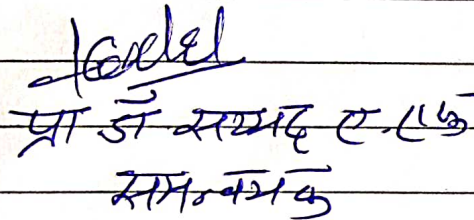 प्रा डॉ सय्यद ए. एफ
समन्वयक